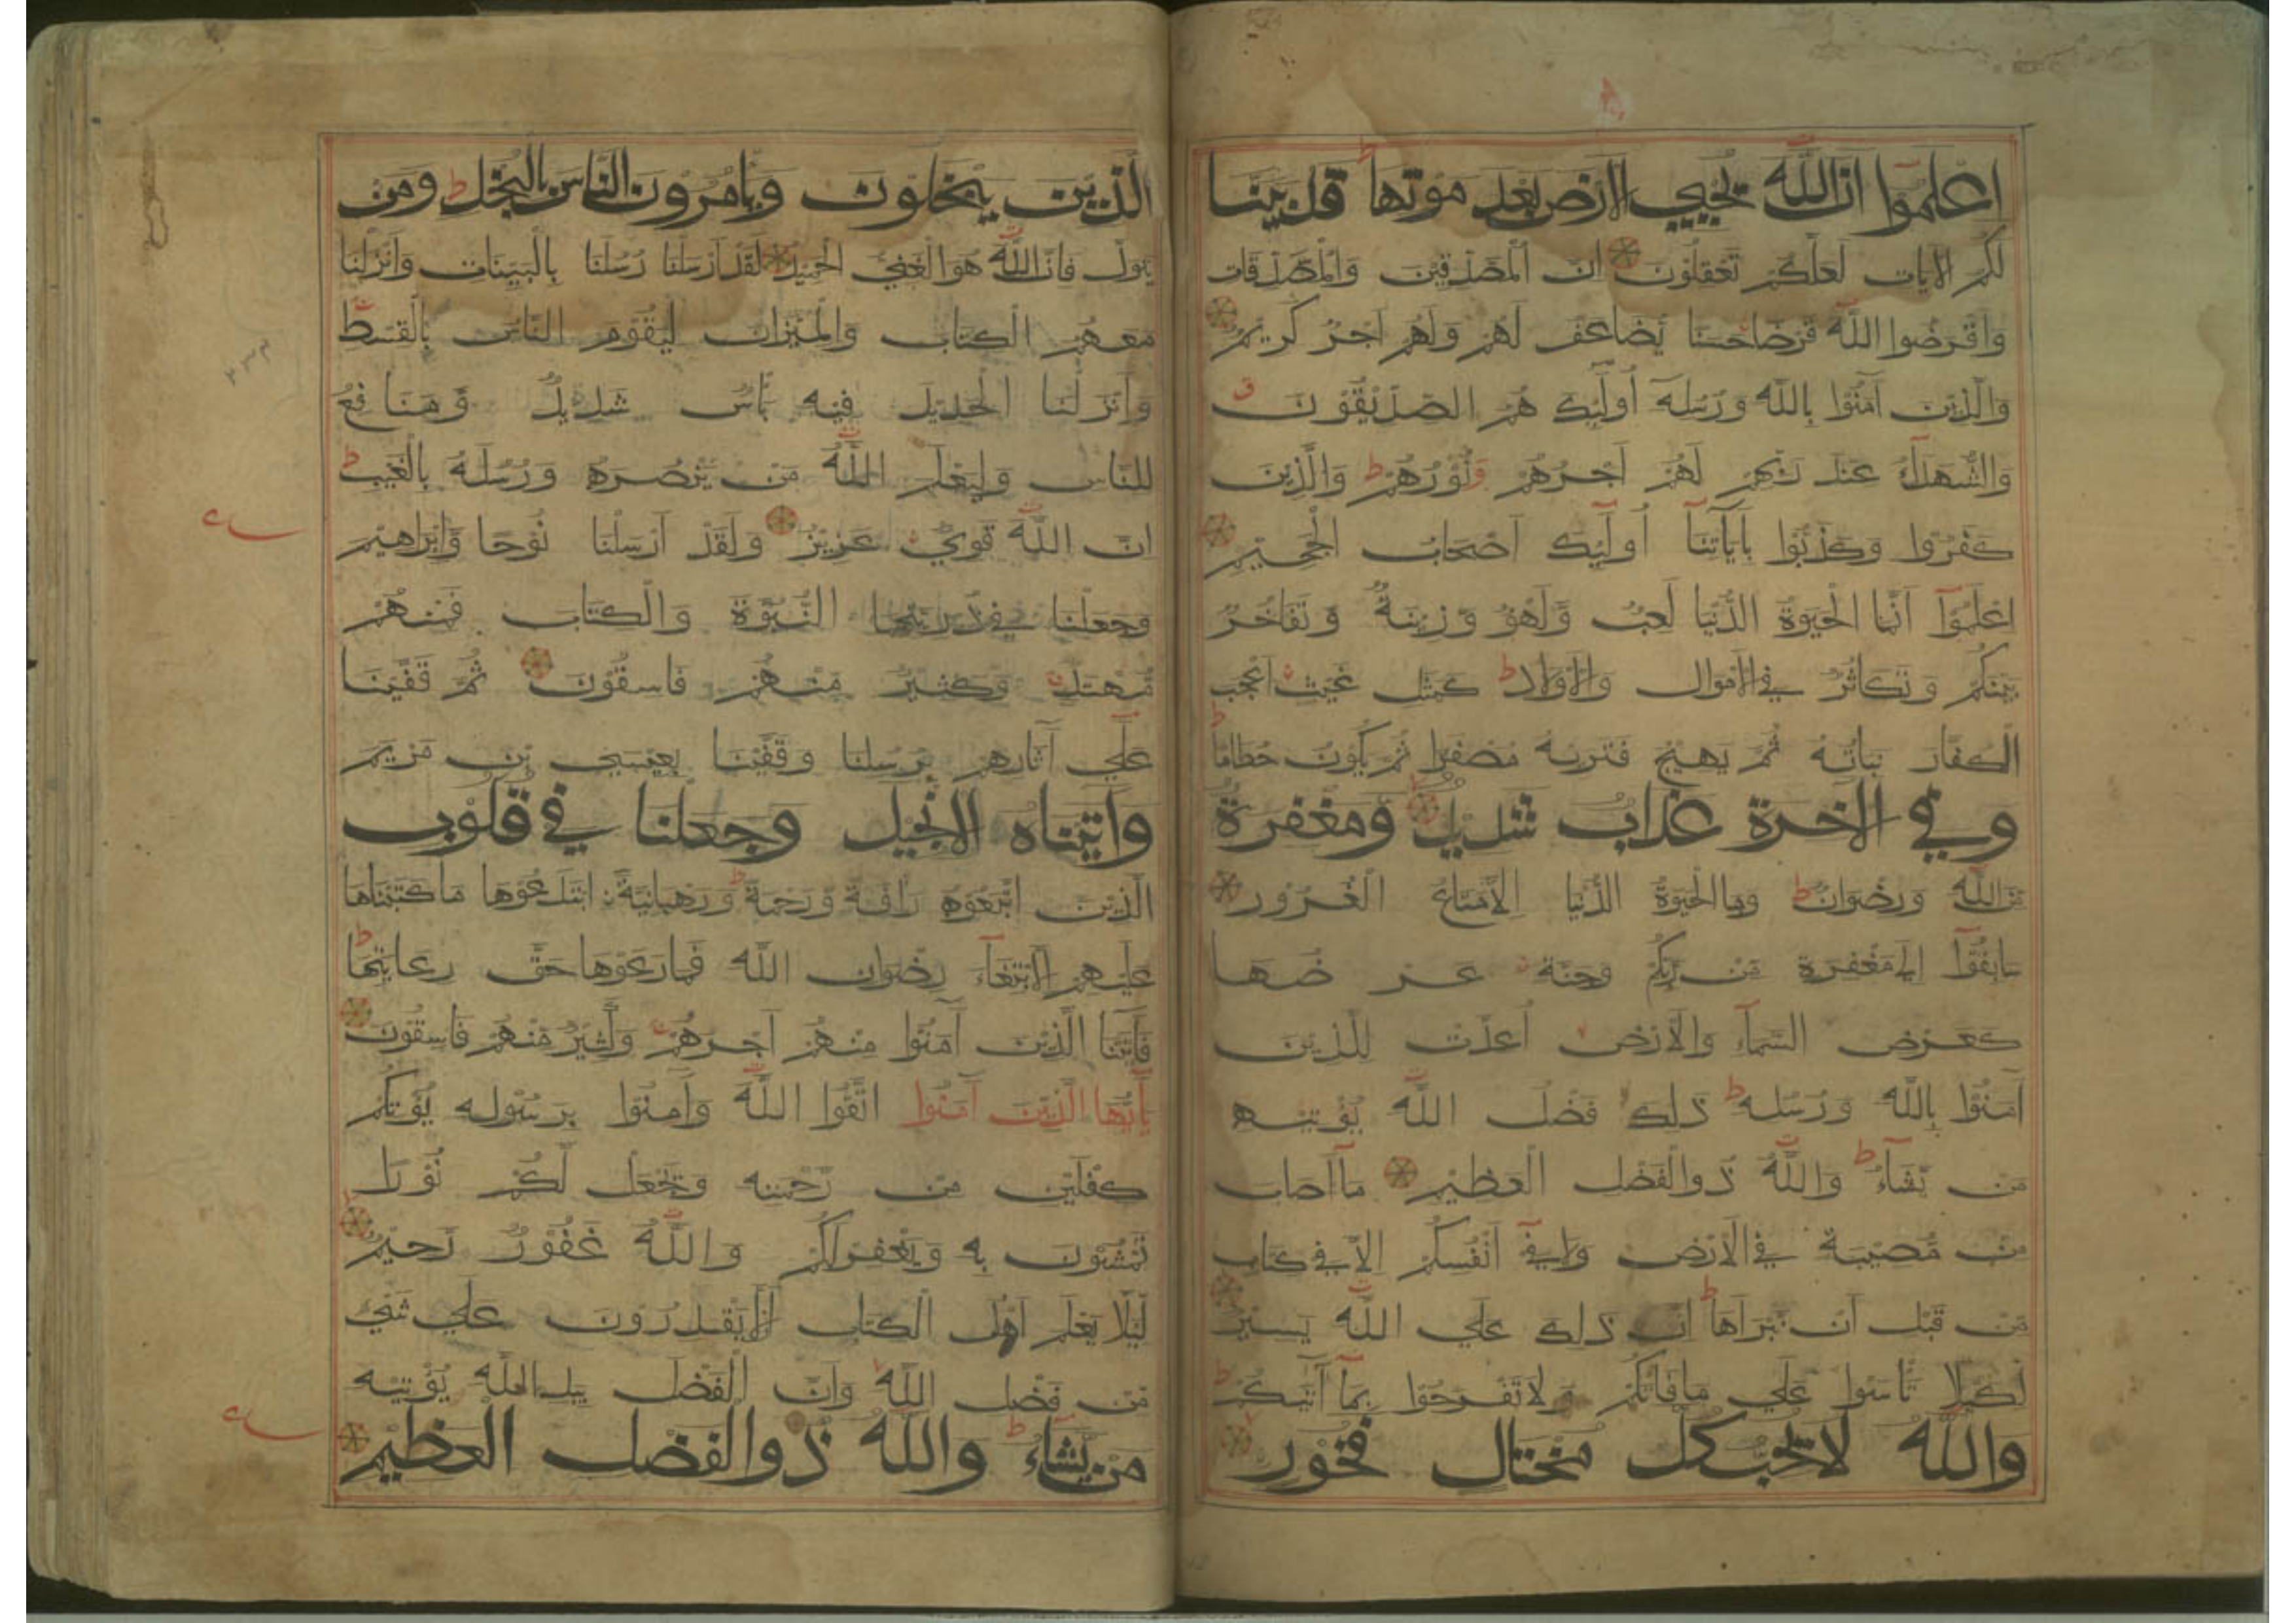 اعْلَمُوا انَّ اللّٰهَ يُحْيِي الْارْضَ بَعْدَ مَوْتِهَا ط قَدْ بَيَّنَّا
لَكُمُ الْايَاتِ لَعَلَّكُمْ تَعْقِلُوْنَ انَّ الْمُصَّدِّقِيْنَ وَالْمُصَّدِّقَاتِ
وَاقْرَضُوا اللّٰهَ قَرْضًا حَسَنًا يُضَاعَفُ لَهُمْ وَلَهُمْ اَجْرٌ كَرِيْمٌ
وَالَّذِيْنَ آمَنُوْا بِاللّٰهِ وَرُسُلِهٖ اُولٓئِكَ هُمُ الصِّدِّيْقُوْنَ ق
وَالشُّهَدَآءُ عِنْدَ رَبِّهِمْ لَهُمْ اَجْرُهُمْ وَنُوْرُهُمْ ط وَالَّذِيْنَ
كَفَرُوْا وَكَذَّبُوْا بِآيَاتِنَآ اُولٓئِكَ اَصْحَابُ الْجَحِيْمِ
اعْلَمُوْآ اَنَّمَا الْحَيٰوةُ الدُّنْيَا لَعِبٌ وَّلَهْوٌ وَّزِيْنَةٌ وَّتَفَاخُرٌ
بَيْنَكُمْ وَتَكَاثُرٌ فِي الْاَمْوَالِ وَالْاَوْلَادِ ط كَمَثَلِ غَيْثٍ اَعْجَبَ
الْكُفَّارَ نَبَاتُهُ ثُمَّ يَهِيْجُ فَتَرٰىهُ مُصْفَرًّا ثُمَّ يَكُوْنُ حُطَامًا ط
وَفِي الْاخِرَةِ عَذَابٌ شَدِيْدٌ وَمَغْفِرَةٌ
مِّنَ اللّٰهِ وَرِضْوَانٌ ط وَمَا الْحَيٰوةُ الدُّنْيَا اِلَّا مَتَاعُ الْغُرُوْرِ
سَابِقُوْآ اِلٰى مَغْفِرَةٍ مِّنْ رَّبِّكُمْ وَجَنَّةٍ عَرْضُهَا
كَعَرْضِ السَّمَآءِ وَالْاَرْضِ اُعِدَّتْ لِلَّذِيْنَ
آمَنُوْا بِاللّٰهِ وَرُسُلِهٖ ط ذٰلِكَ فَضْلُ اللّٰهِ يُؤْتِيْهِ
مَن يَّشَآءُ ط وَاللّٰهُ ذُو الْفَضْلِ الْعَظِيْمِ مَآ اَصَابَ
مِنْ مُّصِيْبَةٍ فِي الْاَرْضِ وَلَا فِيْٓ اَنْفُسِكُمْ اِلَّا فِي كِتَابٍ
مِّنْ قَبْلِ اَنْ نَّبْرَاَهَا ط اِنَّ ذٰلِكَ عَلَى اللّٰهِ يَسِيْرٌ
لِّكَيْلَا تَاْسَوْا عَلٰى مَا فَاتَكُمْ وَلَا تَفْرَحُوْا بِمَآ آتٰىكُمْ ط
وَاللّٰهُ لَا يُحِبُّ كُلَّ مُخْتَالٍ فَخُوْرٍ
الَّذِيْنَ يَبْخَلُوْنَ وَيَامُرُوْنَ النَّاسَ بِالْبُخْلِ ط وَمَنْ
يَّتَوَلَّ فَاِنَّ اللّٰهَ هُوَ الْغَنِيُّ الْحَمِيْدُ لَقَدْ اَرْسَلْنَا رُسُلَنَا بِالْبَيِّنَاتِ وَاَنْزَلْنَا
مَعَهُمُ الْكِتَابَ وَالْمِيْزَانَ لِيَقُوْمَ النَّاسُ بِالْقِسْطِ
وَاَنْزَلْنَا الْحَدِيْدَ فِيْهِ بَأْسٌ شَدِيْدٌ وَّمَنَافِعُ
لِلنَّاسِ وَلِيَعْلَمَ اللّٰهُ مَنْ يَّنْصُرُهُ وَرُسُلَهُ بِالْغَيْبِ ط
انَّ اللّٰهَ قَوِيٌّ عَزِيْزٌ وَلَقَدْ اَرْسَلْنَا نُوْحًا وَّاِبْرَاهِيْمَ
وَجَعَلْنَا فِيْ ذُرِّيَّتِهِمَا النُّبُوَّةَ وَالْكِتَابَ فَمِنْهُمْ
مُّهْتَدٍ وَكَثِيْرٌ مِّنْهُمْ فَاسِقُوْنَ ثُمَّ قَفَّيْنَا
عَلٰٓى آثَارِهِمْ بِرُسُلِنَا وَقَفَّيْنَا بِعِيْسَى بْنِ مَرْيَمَ
وَاتَيْنَاهُ الْانْجِيْلَ وَجَعَلْنَا فِي قُلُوْبِ
الَّذِيْنَ اتَّبَعُوْهُ رَافَةً وَّرَحْمَةً ط وَرَهْبَانِيَّةَ ابْتَدَعُوْهَا مَا كَتَبْنَاهَا
عَلَيْهِمْ اِلَّا ابْتِغَآءَ رِضْوَانِ اللّٰهِ فَمَا رَعَوْهَا حَقَّ رِعَايَتِهَا ط
فَآتَيْنَا الَّذِيْنَ آمَنُوْا مِنْهُمْ اَجْرَهُمْ وَكَثِيْرٌ مِّنْهُمْ فَاسِقُوْنَ
يٰٓاَيُّهَا الَّذِيْنَ آمَنُوا اتَّقُوا اللّٰهَ وَآمِنُوْا بِرَسُوْلِهٖ يُؤْتِكُمْ
كِفْلَيْنِ مِنْ رَّحْمَتِهٖ وَيَجْعَلْ لَّكُمْ نُوْرًا
تَمْشُوْنَ بِهٖ وَيَغْفِرْ لَكُمْ وَاللّٰهُ غَفُوْرٌ رَّحِيْمٌ
لِّئَلَّا يَعْلَمَ اَهْلُ الْكِتَابِ اَلَّا يَقْدِرُوْنَ عَلٰى شَيْءٍ
مِّنْ فَضْلِ اللّٰهِ وَاَنَّ الْفَضْلَ بِيَدِ اللّٰهِ يُؤْتِيْهِ
مَنْ يَّشَآءُ ط وَاللّٰهُ ذُو الْفَضْلِ الْعَظِيْمِ